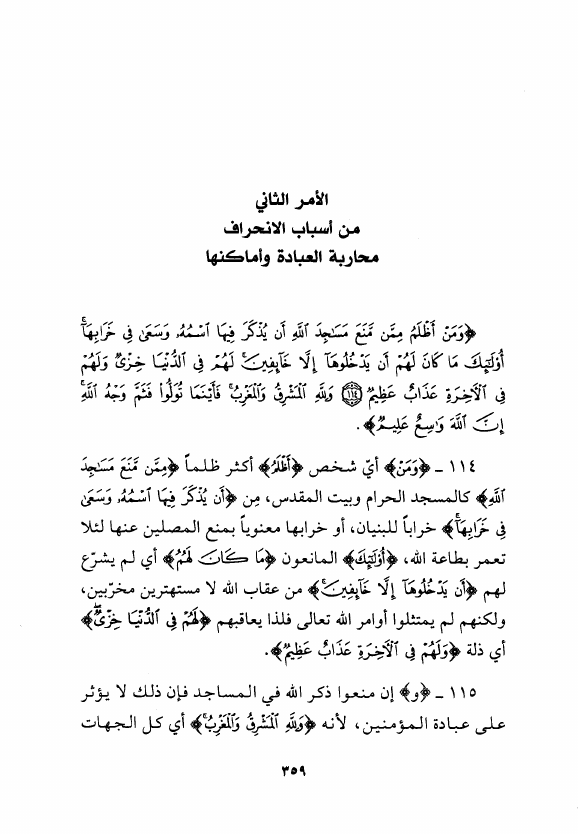 الأمر الثاني
من أسباب الانحراف
محاربة العبادة وأماكنها
﴿وَمَنْ أَظْلَمُ مِمَّن مَّنَعَ مَسَاجِدَ اللَّهِ أَن يُذْكَرَ فِيهَا اسْمُهُ وَسَعَىٰ فِي خَرَابِهَا ۚ
أُوْلَٰٓئِكَ مَا كَانَ لَهُمْ أَن يَدْخُلُوهَآ إِلَّا خَآئِفِينَ ۚ لَهُمْ فِي الدُّنْيَا خِزْيٌ وَلَهُمْ
فِي الْآخِرَةِ عَذَابٌ عَظِيمٌ ١١٤ وَلِلَّهِ الْمَشْرِقُ وَالْمَغْرِبُ ۚ فَأَيْنَمَا تُوَلُّوا فَثَمَّ وَجْهُ اللَّهِ ۚ
إِنَّ اللَّهَ وَاسِعٌ عَلِيمٌ﴾.
١١٤ ـ ﴿وَمَنْ﴾ أيّ شخص ﴿أَظْلَمُ﴾ أكثر ظلماً ﴿مِمَّن مَّنَعَ مَسَاجِدَ
اللَّهِ﴾ كالمسجد الحرام وبيت المقدس، مِن ﴿أَن يُذْكَرَ فِيهَا اسْمُهُ وَسَعَىٰ
فِي خَرَابِهَا ۚ﴾ خراباً للبنيان، أو خرابها معنوياً بمنع المصلين عنها لئلا
تعمر بطاعة الله، ﴿أُوْلَٰٓئِكَ﴾ المانعون ﴿مَا كَانَ لَهُمْ﴾ أي لم يشرّع
لهم ﴿أَن يَدْخُلُوهَآ إِلَّا خَآئِفِينَ ۚ﴾ من عقاب الله لا مستهترين مخرّبين،
ولكنهم لم يمتثلوا أوامر الله تعالى فلذا يعاقبهم ﴿لَهُمْ فِي الدُّنْيَا خِزْيٌ ۖ﴾
أي ذلة ﴿وَلَهُمْ فِي الْآخِرَةِ عَذَابٌ عَظِيمٌ﴾.
١١٥ ـ ﴿و﴾ إن منعوا ذكر الله في المساجد فإن ذلك لا يؤثر
على عبادة المؤمنين، لأنه ﴿وَلِلَّهِ الْمَشْرِقُ وَالْمَغْرِبُ ۚ﴾ أي كل الجهات
٣٥٩